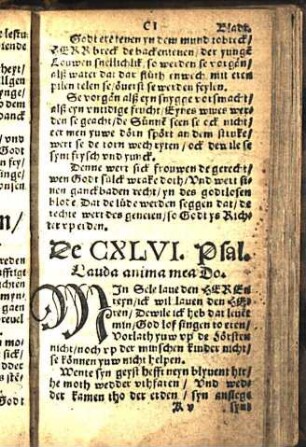 CI Bladt.
Godt ere tenen yn dem mund tobreck/
HERR breck de backentenen / der yungē
Louwen snellichlick, so werden se vorgān
alß water dat dar flüth en wech, mit eren
pilen telen se / överst se werden feylen.
Se vorgān alß eyn snygge vorsmacht/
alß eyn vntidige frucht / Eynes wives wer
den se geacht / de Sünne seen se ock nicht
eer men yuwe dörn spört an dem struke/
wert se de torn wech ryten / ock dewile se
syn frysch vnd yunck.
Denne wert sick frouwen de gerecht/
wen Godt sülck wrake doth / Vnd wert si
nen ganck baden recht / yn des godtlosen
blode Dat de lüde werden seggen dat / de
rechte wert des geneten / so Godt ys Rich
ter vp erden.
De CXLVI. Psal.
Lauda anima mea Do.
MIn Sele lave den HEREN
reyn / ick wil laven den HE
ren / Dewile ick heb dat levent
min / God lof singen to eren/
Vorlath yuw vp de Försten
nicht / noch vp der minschen kinder nicht/
se können yuw nicht helpen.
Wente syn geyst hefft neyn blyvent hir/
he moth wedder vthfaren / Vnd wed
der kamen tho der erden / syn anslege
A v synt